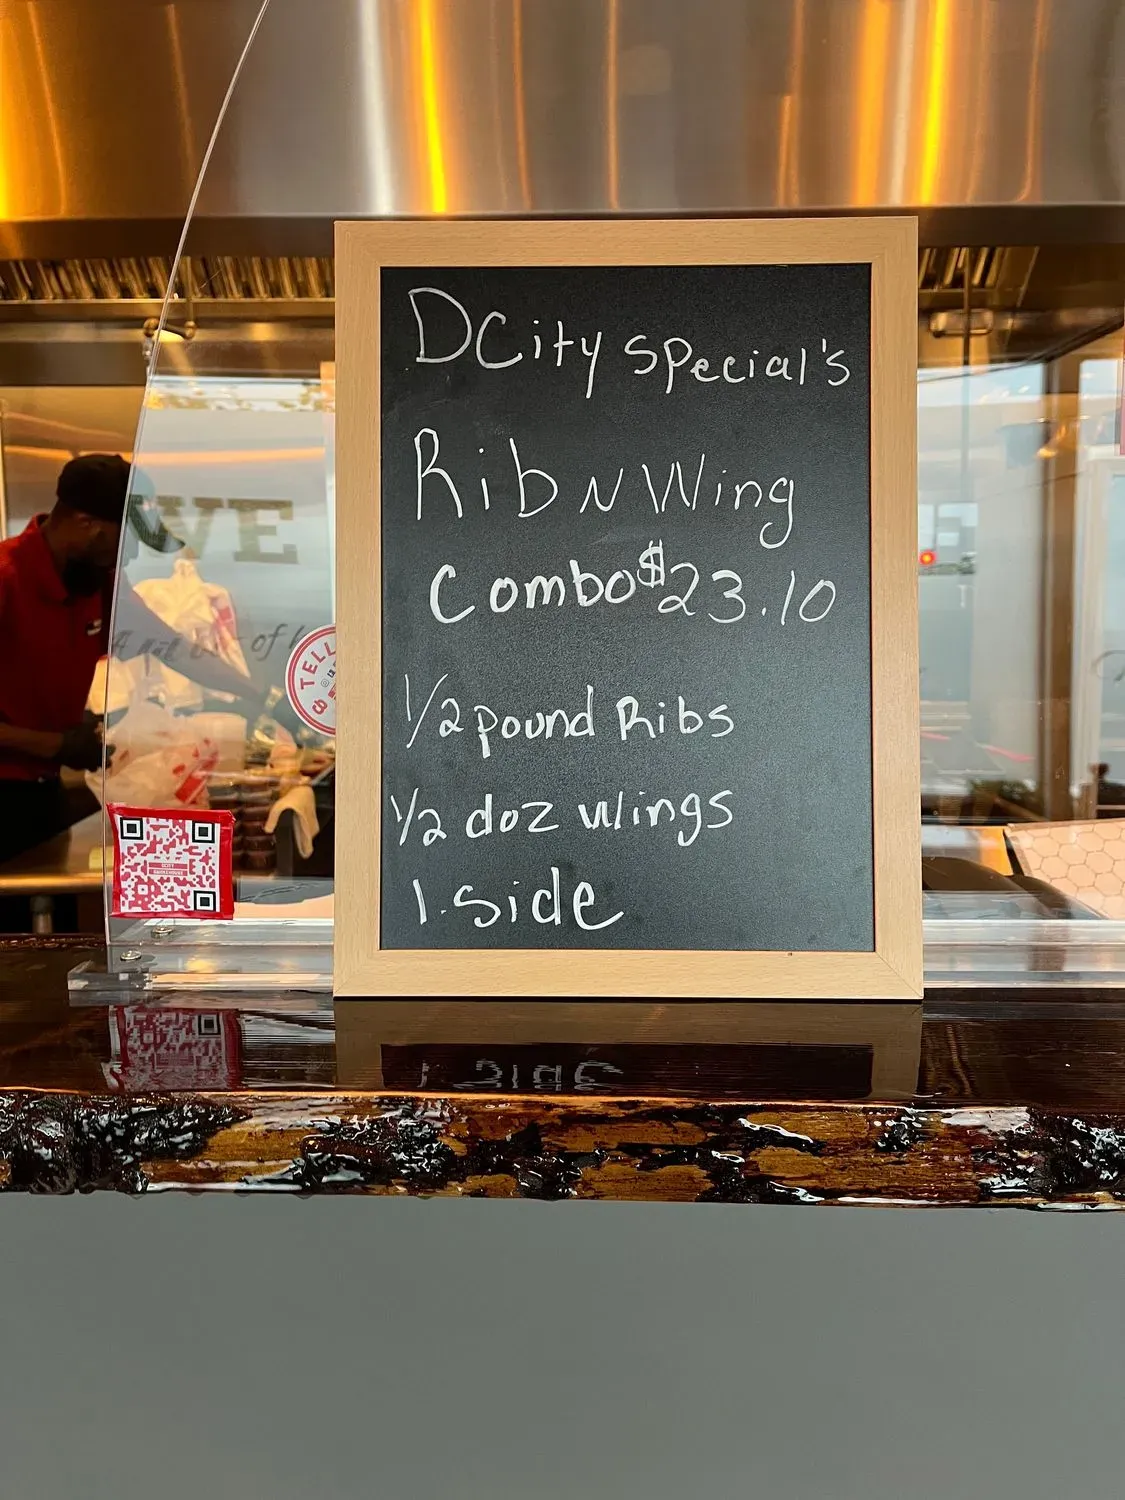 DCity Special's
Rib N Wing
Combo $23.10
1/2 pound Ribs
1/2 doz Wings
1. side
WE
of
TELL
DCITY
SMOKEHOUSE